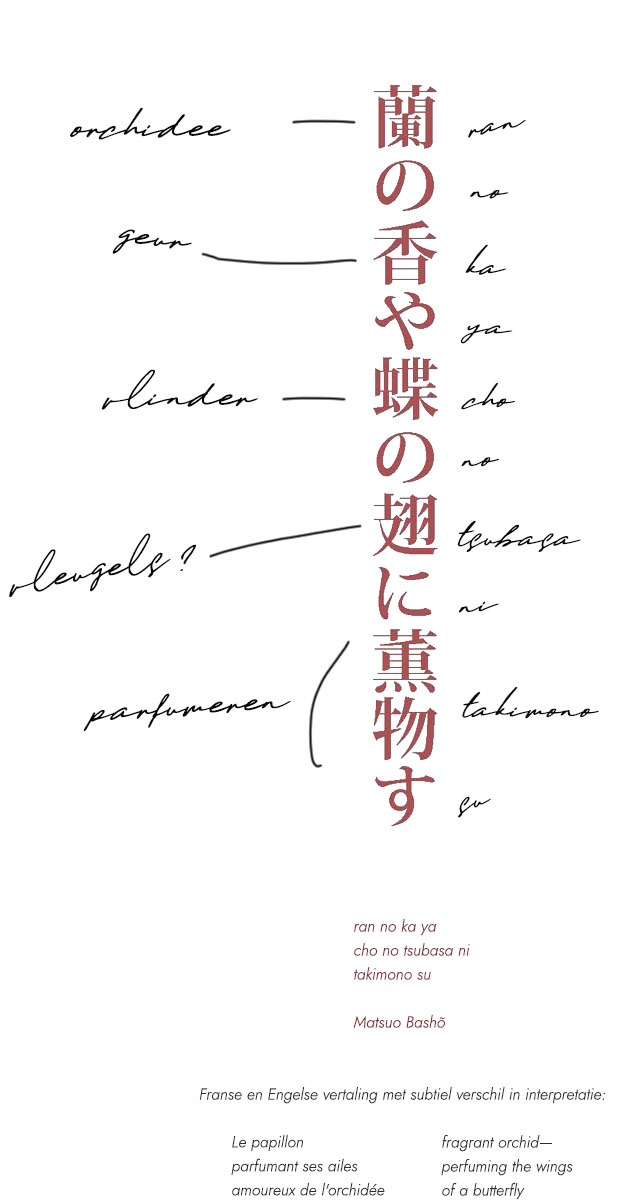 orchidee
geur
vlinder
vleugels?
parfumeren
蘭の香や蝶の翅に薫物す
ran
no
ka
ya
cho
no
tsubasa
ni
takimono
su
ran no ka ya
cho no tsubasa ni
takimono su
Matsuo Bashõ
Franse en Engelse vertaling met subtiel verschil in interpretatie:
Le papillon
parfumant ses ailes
amoureux de l'orchidée
fragrant orchid—
perfuming the wings
of a butterfly